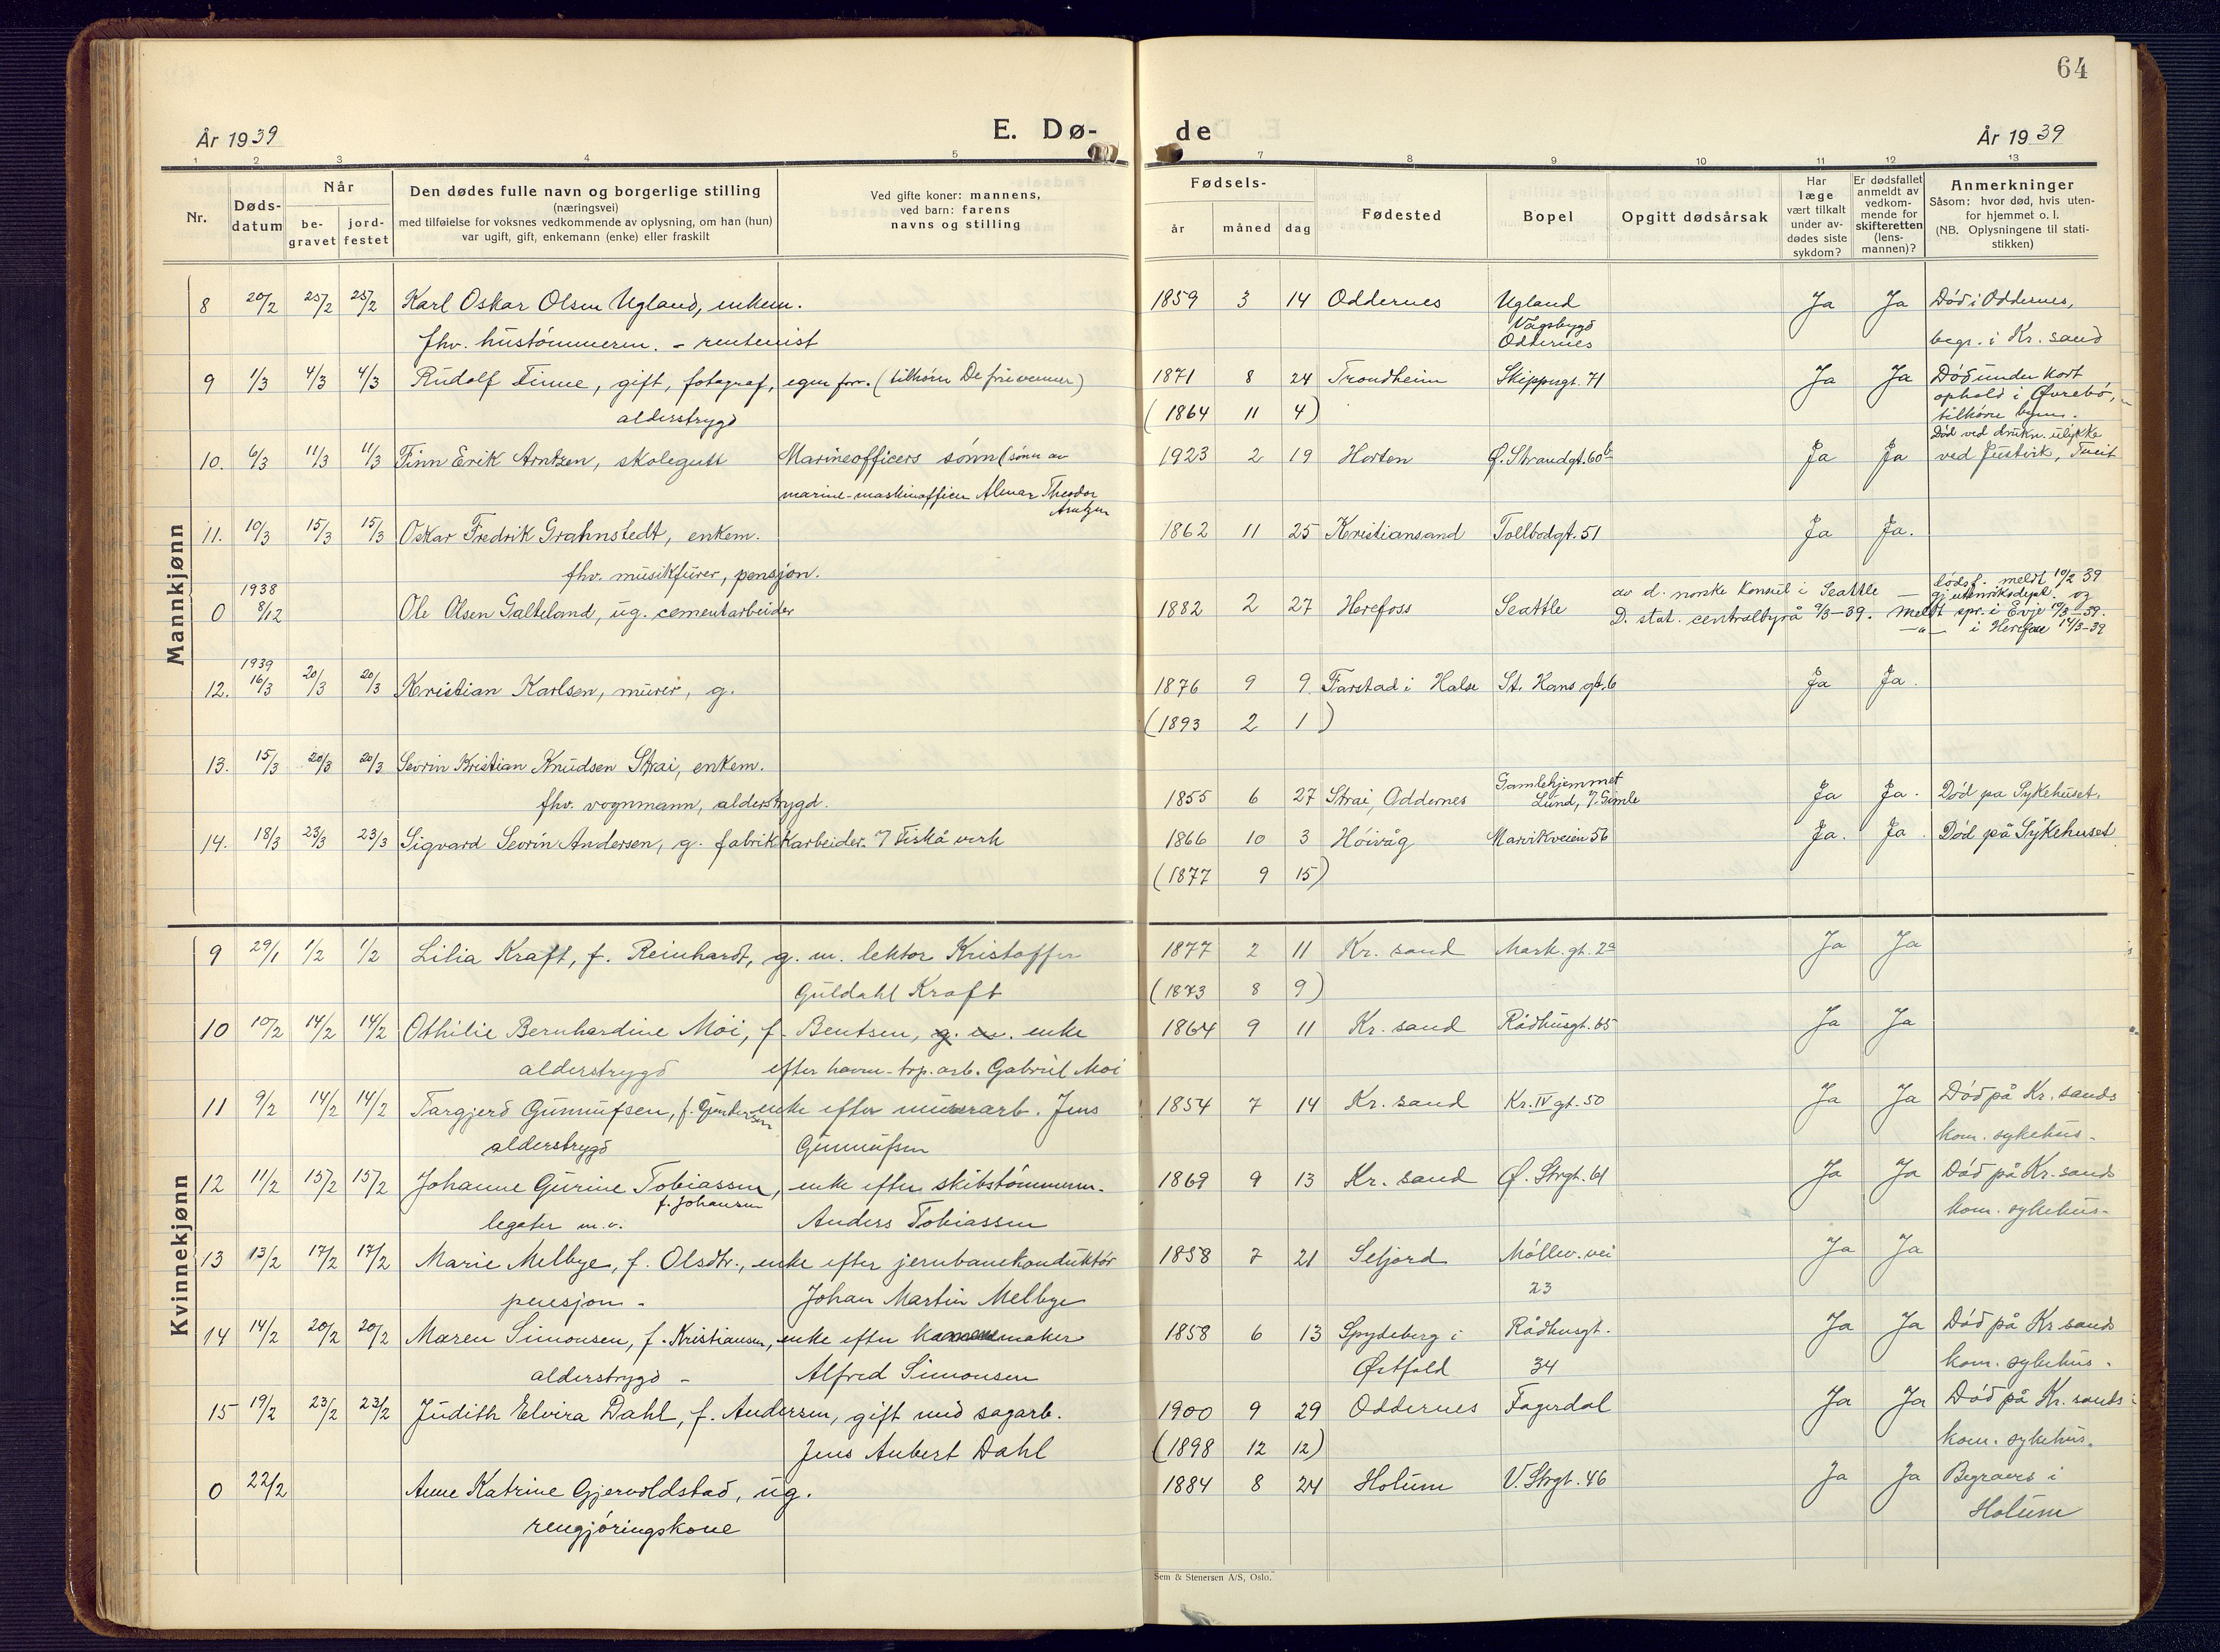 64
År 1939
E. Dø-
de
År 1939
1 2 3 4 5 7 8 9 10 11 12 13
Nr.
Døds-
datum
Når
be-
gravet
jord-
festet
Den dødes fulle navn og borgerlige stilling
(næringsvei)
med tilføielse for voksnes vedkommende av oplysning, om han (hun)
var ugift, gift, enkemann (enke) eller fraskilt
Ved gifte koner: mannens,
ved barn: farens
navns og stilling
Fødsels-
år måned dag
Fødested
Bopel
Opgitt dødsårsak
Har
læge
vært tilkalt
under av-
dødes siste
sykdom?
Er dødsfallet
anmeldt av
vedkom-
mende for
skifteretten
(lens-
mannen)?
Anmerkninger
Såsom: hvor død, hvis uten-
for hjemmet o. l.
(NB. Oplysningene til stati-
stikken)
Mannkjønn
8 20/2 25/2 25/2 Karl Oskar Olsen Ugland, enkem. 1859 3 14 Oddernes Ugland Ja Ja Død i Oddernes,
Vågsbygd
fhv. hustømmerm. - rentenist Oddernes begr. i Kr. sand
9 1/3 4/3 4/3 Rudolf Finne, gift, fotograf, egen forr. (tilhører De frie venner) 1871 8 24 Trondheim Skippergt. 71 Ja Ja Død under kort
ophold i Øvrebø,
alderstrygd (1864 11 4) tilhører byen.
Død ved drukn. ulykke
10. 6/3 11/3 11/3 Finn Erik Arntzen, skolegutt Marineofficers sønn (sønn av 1923 2 19 Horten Ø. Strandgt. 60b Ja Ja ved Justvik, Tveit
marine-maskinofficer Almar Theodor
Arntzen
11. 10/3 15/3 15/3 Oskar Fredrik Grahnstedt, enkem. 1862 11 25 Kristiansand Tollbodgt. 51 Ja Ja.
fhv. musikfurer, pensjon.
1938
0 8/12 Ole Olsen Galteland, ug. cementarbeider 1882 2 27 Herefoss Seattle av d. norske Konsul i Seattle — dødsf. meldt 10/2 39
gj. utenriksdept. og
D. stat. centralbyrå 9/3-39. Meldt spr. i Evje 14/3-39.
—"— i Herefoss 14/3-39
1939
12. 16/3 20/3 20/3 Kristian Karlsen, murer, g. 1876 9 9 Farstad i Halse St. Hans gt. 6 Ja Ja.
(1893 2 1)
13. 15/3 20/3 20/3 Sevrin Kristian Knudsen Strai, enkem.
fhv. vognmann, alderstrygd. 1855 6 27 Strai, Oddernes Gamlehjemmet
Lund, 7. Gimle Ja Ja. Død på Sykehuset.
14. 18/3 23/3 23/3 Sigvard Sevrin Andersen, g. fabrikkarbeider. 7 Fiskå verk 1866 10 3 Høivåg Marvikveien 56 Ja. Ja. Død på Sykehuset.
(1877 9 15)
Kvinnekjønn
9 29/1 1/2 1/2 Lilia Kraft, f. Reinhardt, g. m. lektor Kristoffer 1877 2 11 Kr. sand Mark. gt. 2a Ja Ja
Guldahl Kraft (1873 8 9)
10 10/2 14/2 14/2 Othilie Bernhardine Moi, f. Bentsen, g. m. enke 1864 9 11 Kr. sand Rådhusgt. 65 Ja Ja
alderstrygd efter havne-trp. arb. Gabriel Moi
11 9/2 14/2 14/2 Targjerd Gunnufsen, f. Gundersen enke efter murerarb. Jens 1854 7 14 Kr. sand Kr. IV gt. 50 Ja Ja Død på Kr. sands
alderstrygd Gunnufsen kom. sykehus.
12 11/2 15/2 15/2 Johanne Gurine Tobiassen, enke efter skibstømmerm. 1869 9 13 Kr. sand Ø. Strgt. 61 Ja Ja Død på Kr. sands
f. Johansen
legater m.v. Anders Tobiassen kom. sykehus.
13 13/2 17/2 17/2 Marie Melbye, f. Olsdtr., enke efter jernbanekonduktør 1858 7 21 Seljord Møllev. vei Ja Ja
pensjon. Johan Martin Melbye 23
14 14/2 20/2 20/2 Maren Simonsen, f. Kristiansen, enke efter 1858 6 13 Spydeberg i Rådhusgt. Ja Ja Død på Kr. sands
alderstrygd - Alfred Simonsen Østfold 34 kom. sykehus.
15 19/2 23/2 23/2 Judith Elvira Dahl, f. Andersen, gift med sagarb. 1900 9 29 Oddernes Fagerdal Ja Ja Død på Kr. sands
Jens Aubert Dahl (1898 12 12) kom. sykehus.
0 22/2 Anne Katrine Gjervoldstad, ug. 1884 8 24 Holum V. Strgt. 46 Ja Ja Begraves i
rengjøringskone Holum
Sem & Stenersen A/S, Oslo.